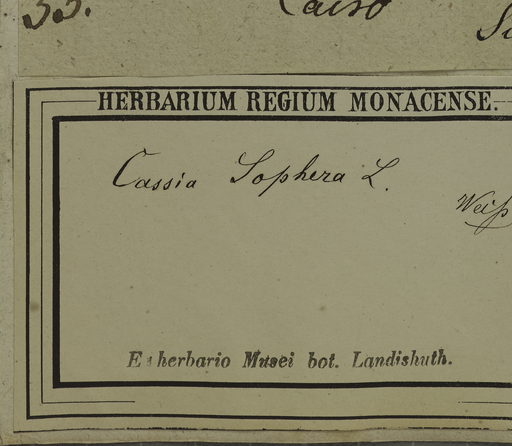 33. Cairo
HERBARIUM REGIUM MONACENSE.
Cassia Sophera L.
Weiß
E herbario Musei bot. Landishuth.